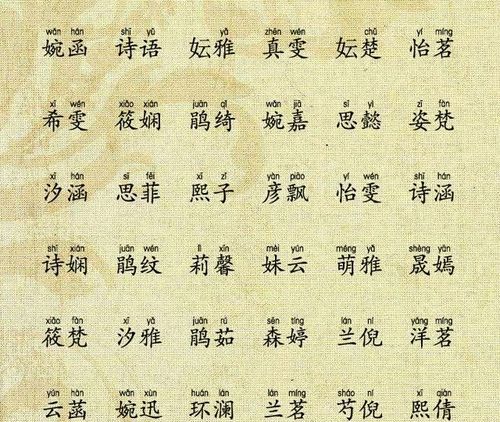 wǎn hán shī yǔ yǎ zhēn wén chǔ yí míng
婉函 诗语 妘雅 真雯 妘楚 怡茗
xī wén xiǎo xián juān qǐ wǎn jiā sī yì zī fàn
希雯 筱娴 鹃绮 婉嘉 思懿 姿梵
xī hán sī fēi xī zǐ yàn piāo yí wén shī hán
汐涵 思菲 熙子 彦飘 怡雯 诗涵
shī xián juān wén lì xīn mèi yún méng yǎ shèng yān
诗娴 鹃纹 莉馨 妹云 萌雅 晟嫣
xiǎo fàn xī yǎ juān rú sēn tíng lán ní yáng míng
筱梵 汐雅 鹃茹 森婷 兰倪 洋茗
yún hàn wǎn xùn huán lán lán míng sháo ní xī qiàn
云菡 婉迅 环澜 兰茗 芍倪 熙倩